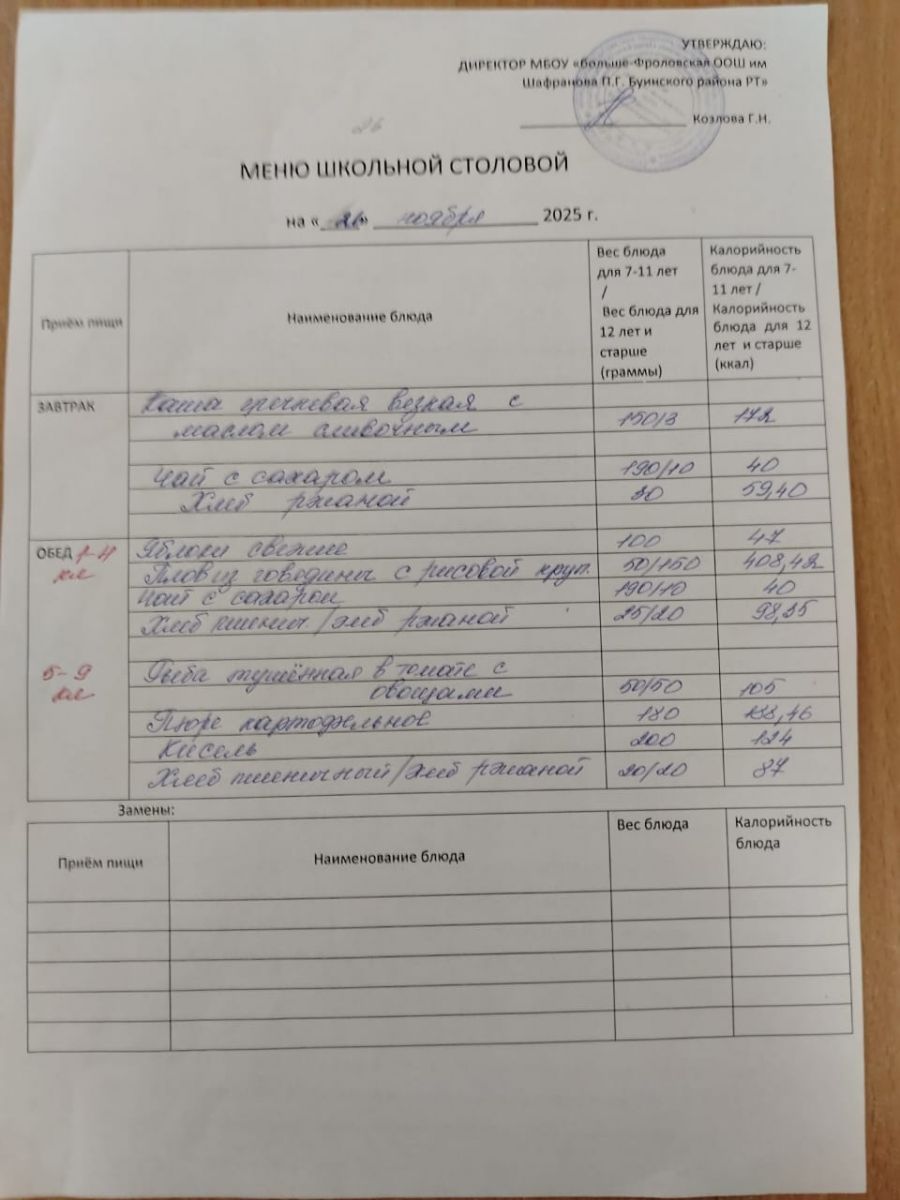 УТВЕРЖДАЮ:
ДИРЕКТОР МБОУ «Больше-Фроловская ООШ им
Шафранова П.Г. Буинского района РТ»
Козлова Г.Н.
26
МЕНЮ ШКОЛЬНОЙ СТОЛОВОЙ
на «26» ноября 2025 г.
Приём пищи
Наименование блюда
Вес блюда
для 7-11 лет
/
Вес блюда для
12 лет и
старше
(граммы)
Калорийность
блюда для 7-
11 лет /
Калорийность
блюда для 12
лет и старше
(ккал)
ЗАВТРАК Каша гречневая вязкая с
маслом сливочным 150/3 172
Чай с сахаром 190/10 40
Хлеб ржаной 30 59,40
ОБЕД 1-4 Яблоки свежие 100 47
кл Плов из говядины с рисовой круп. 50/150 408,42
Чай с сахаром 190/10 40
Хлеб пшенич/хлеб ржаной 25/20 98,35
5-9 Рыба тушённая в томате с
кл овощами 50/50 105
Пюре картофельное 180 138,46
Кисель 200 124
Хлеб пшеничный/хлеб ржаной 20/20 87
Замены:
Приём пищи
Наименование блюда
Вес блюда
Калорийность
блюда